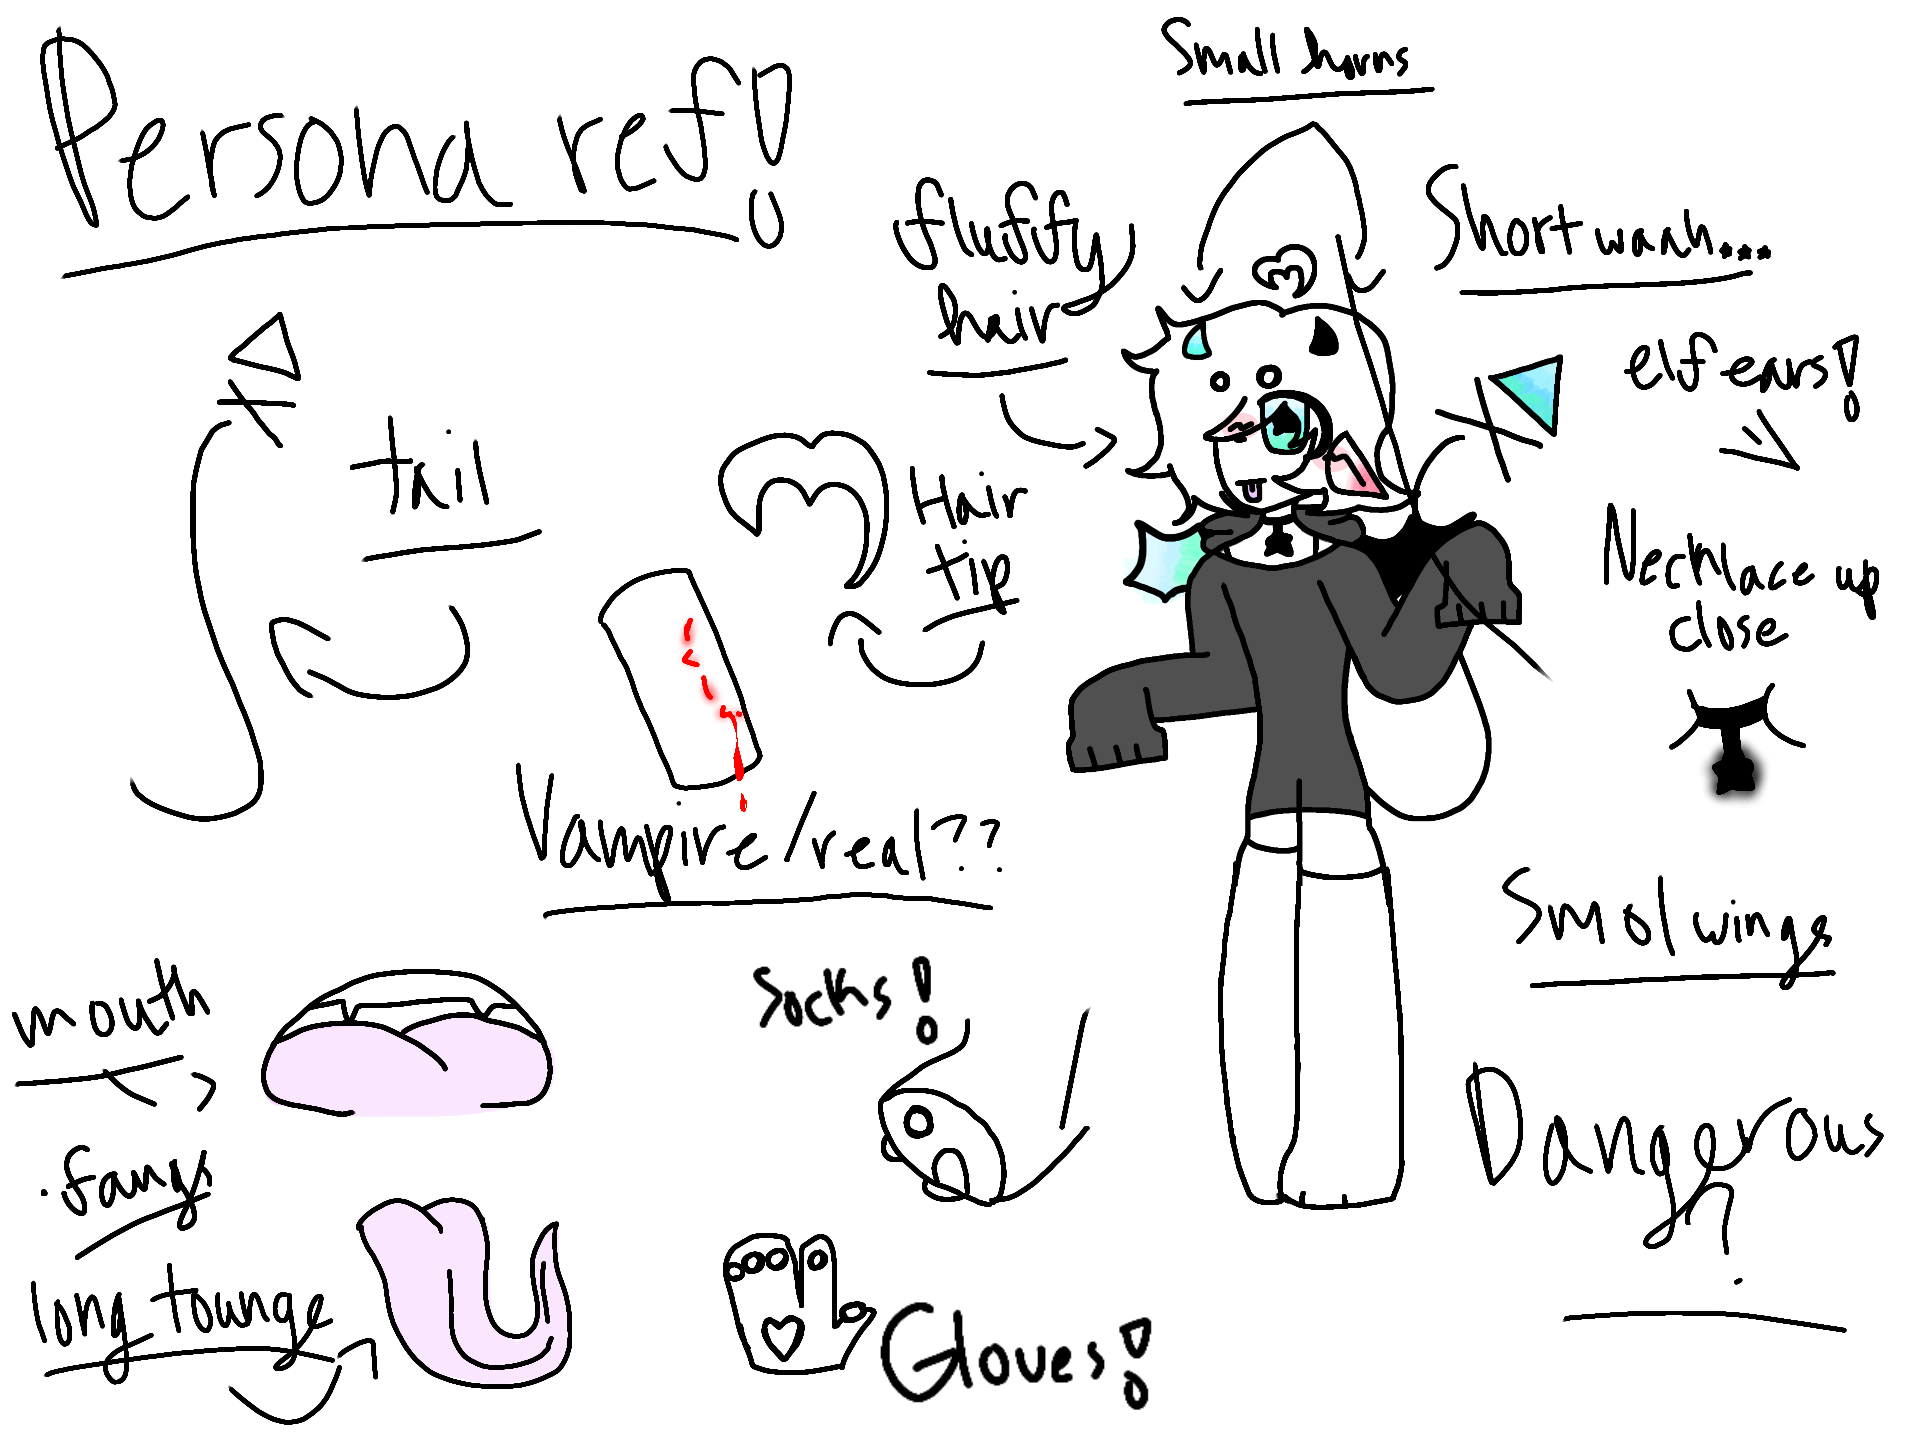 Persona ref!
Small horns
fluffy
hair
Short waah...
elf ears!
tail
Hair
tip
Necklace up
close
Vampire/real??
Smol wings
mouth
Socks!
Dangerous
?
.fangs
long tounge
Gloves!